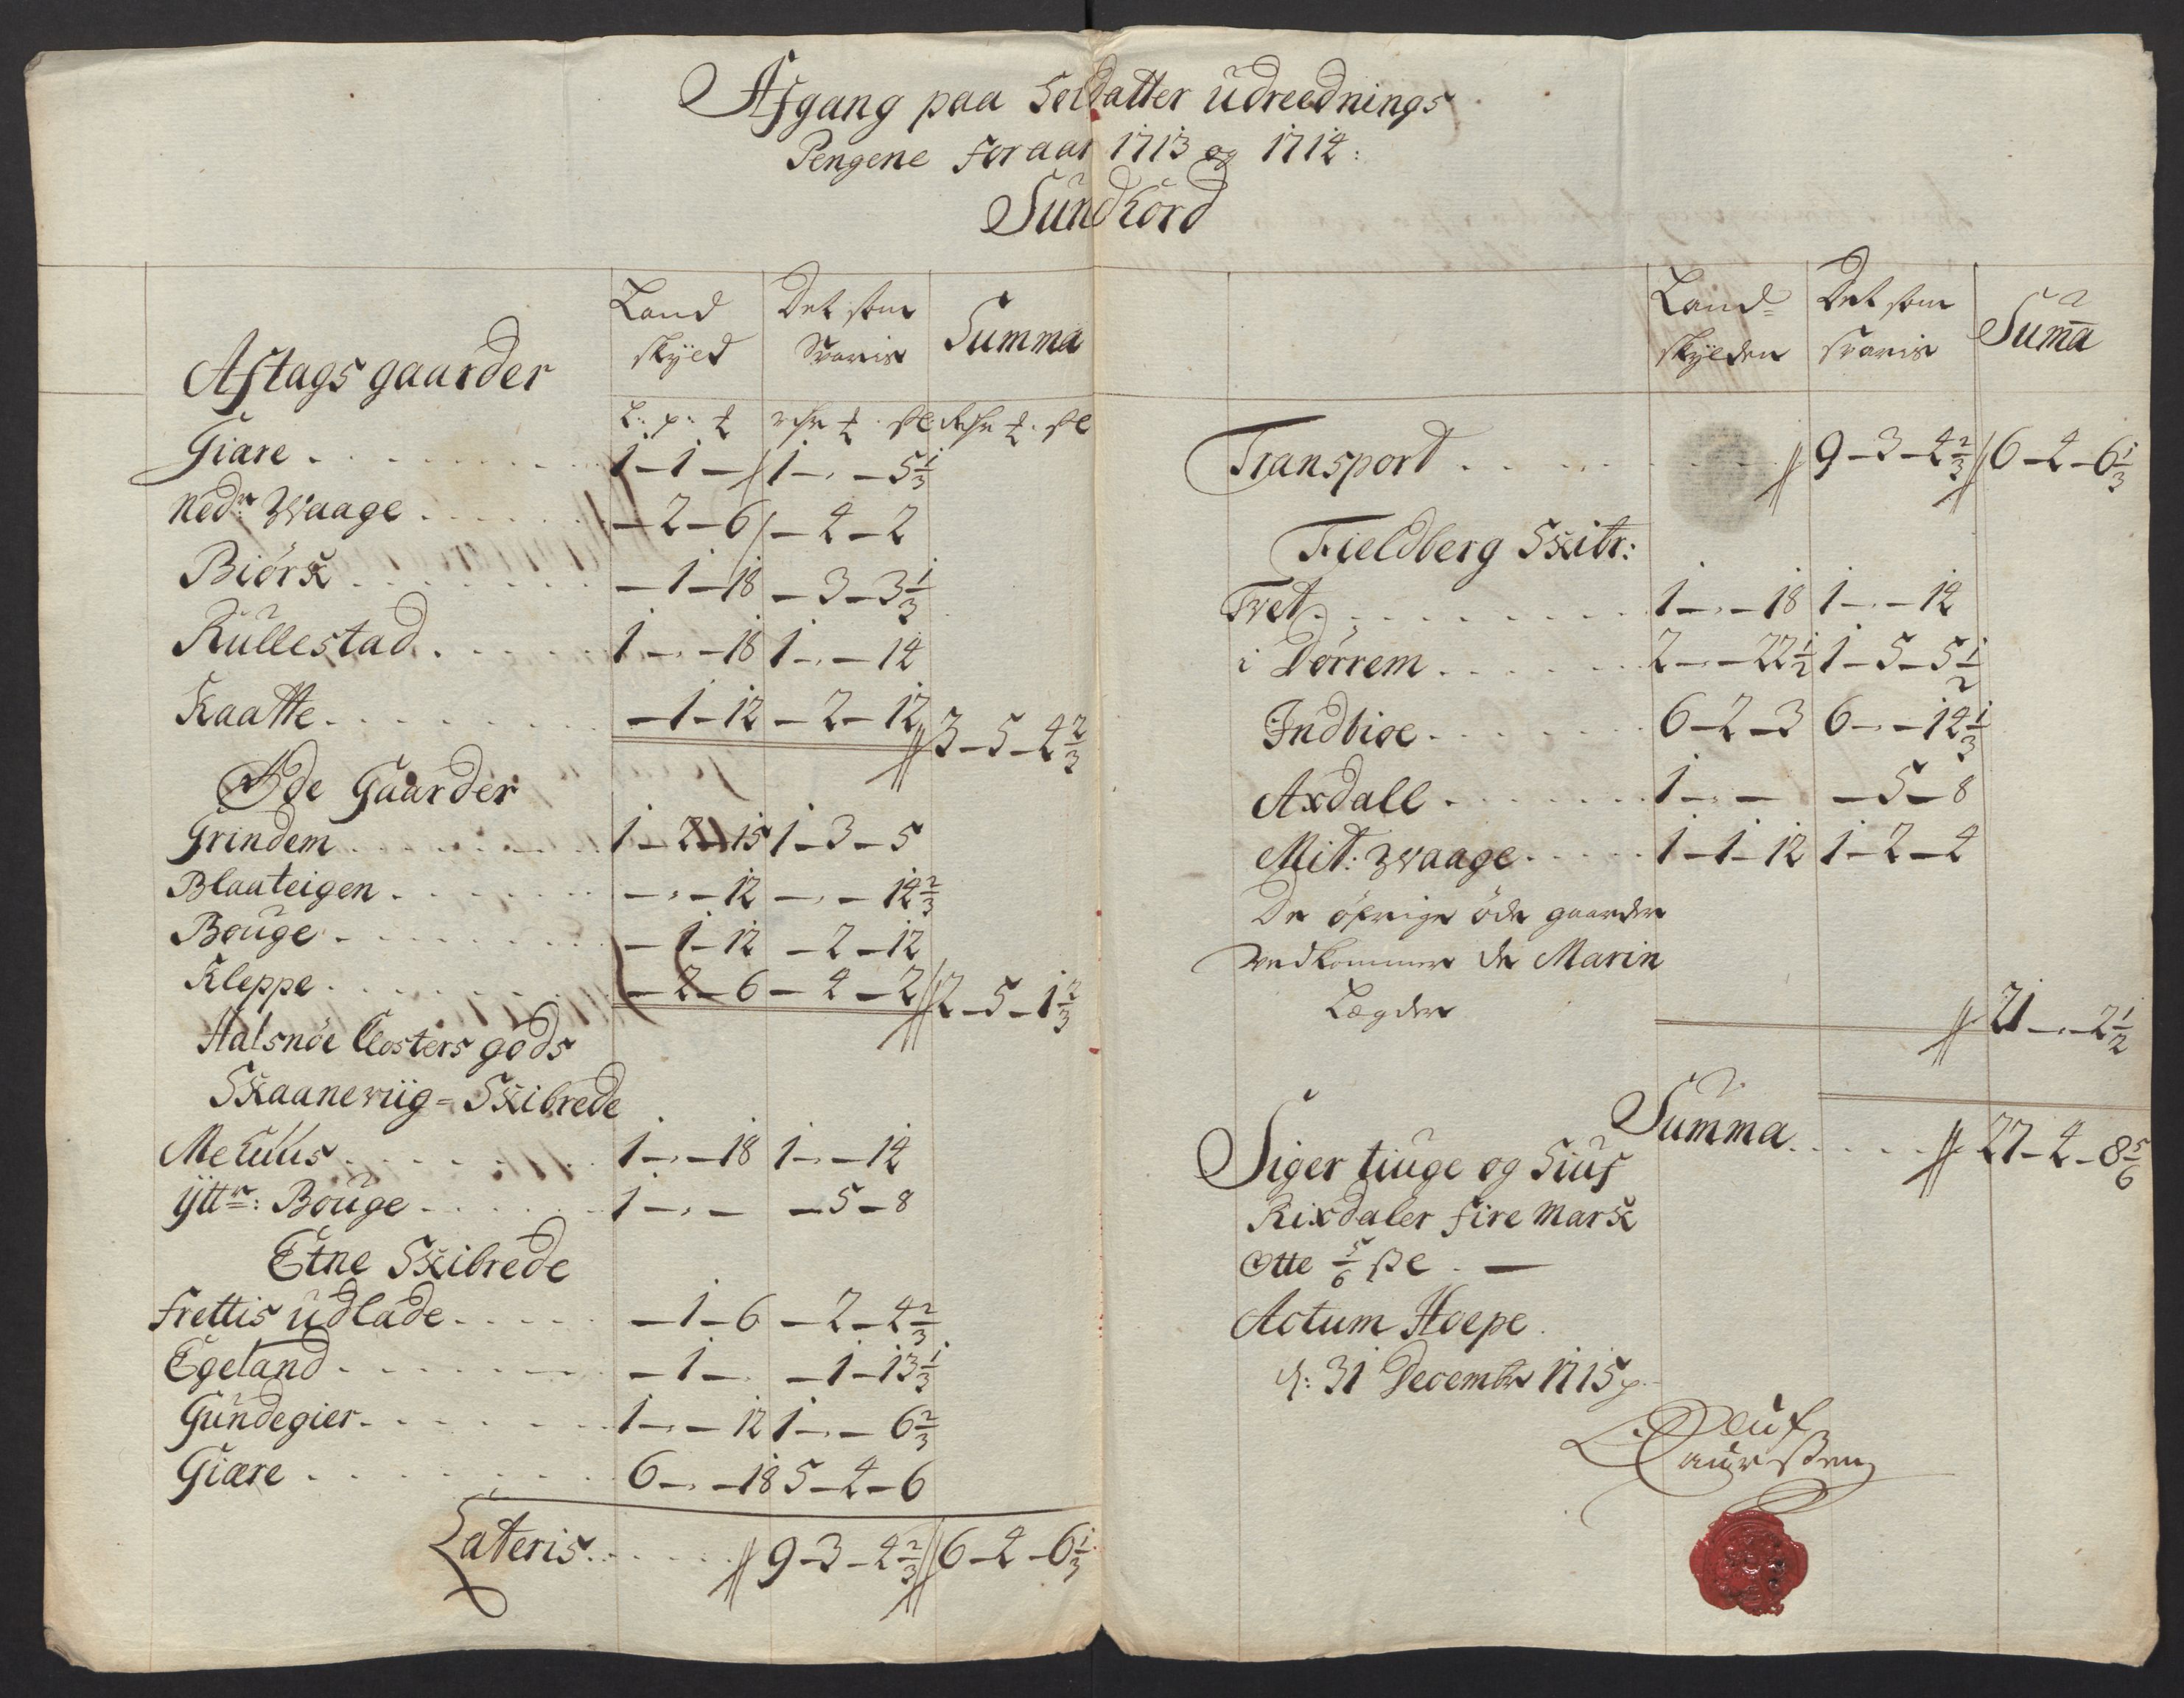 Afgang paa Soldatter udreednings
Pengene for aar 1713 og 1714:
Sundhord
Land skyld | Det som Svaris | Summa
Aftags gaarder
L: p: ȶ | rdr ȶ . sk | Rdr ȶ . sk
Giære . . . 1 - 1 - // 1 - " - 5 1/3
Nedr: Waage . . . - 2 - 6 / - 4 - 2
Biørk . . . - 1 - 18 - 3 - 3 1/3
Rullestad . . . 1 - " - 18 1 - " - 14
Kaatte . . . - 1 - 12 - 2 - 12 // 3 - 5 - 4 2/3
Øde Gaarder
Grindem . . . 1 - 2 - 15 1 - 3 - 5
Blaateigen . . . - " - 12 - " - 14 2/3
Bouge . . . - 1 - 12 - 2 - 12
Kleppe . . . - 2 - 6 - 4 - 2 // 2 - 5 - 1 2/3
Halsnøe Closters gods
Skaaneviig = Skibrede
Mehuus . . . 1 - " - 18 1 - " - 14
Ÿttr: Bouge . . . 1 - " - - 5 - 8
Etne Skibrede
Frettis udlade . . . - 1 - 6 - 2 - 4 2/3
Egeland . . . - 1 - - 1 - 13 1/3
Gundegier . . . 1 - " - 12 1 - " - 6 2/3
Giære . . . 6 - " - 18 5 - 4 - 6
Lateris . . . // 9 - 3 - 4 2/3 // 6 - 4 - 6 1/3
Land= skylden | Det som svaris | Suma
Transport . . . // 9 - 3 - 4 2/3 // 6 - 4 - 6 1/3
Fieldberg Skibr:
Tvet . . . 1 - " - 18 1 - " - 14
i Dørrem . . . 2 - " - 22 1/2 1 - 5 - 5 1/2
Indbiøe . . . 6 - 2 - 3 6 - " - 14 1/3
Axdall . . . 1 - " - - 5 - 8
Mit: Waage . . . 1 - 1 - 12 1 - 2 - 4
De øfrige øde gaarder
vedkommer de Marin
Lægder // 21 - " - 2 1/2
Summa . . . // 27 - 4 - 8 5/6
Siger tiuge og Siuf
Rixdaler fire Mark
Otte 5/6 sk . —
Actum Hoepe .
d: 31 Decembr 1715
Oluf
Laurssen